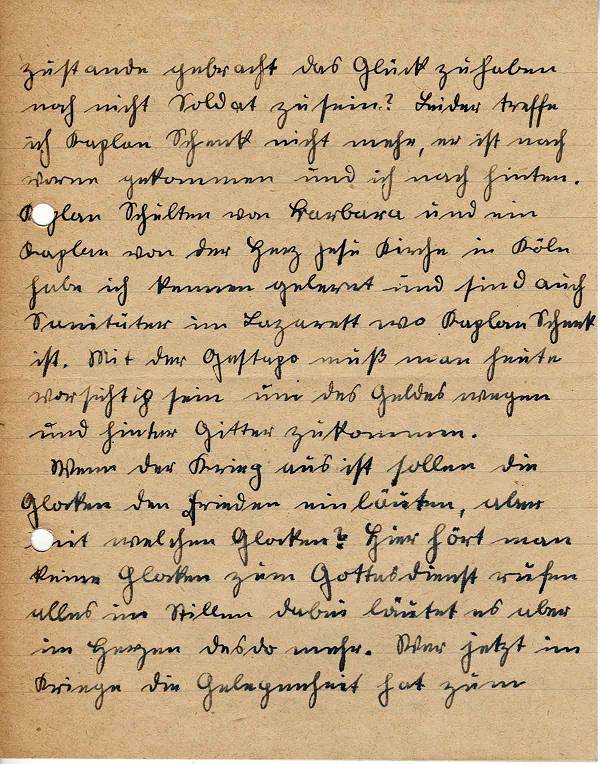 zustande gebracht das Glück zuhaben
noch nicht Soldat zusein? Leider treffe
ich Kaplan Schenk nicht mehr, er ist nach
vorne gekommen und ich nach hinten.
Kaplan Schulten von Barbara und ein
Kaplan von der Herz Jesu Kirche in Köln
habe ich kennen gelernt und sind auch
Sanitäter im Lazarett wo Kaplan Schenk
ist. Mit der Gestapo muß man heute
vorsichtig sein um des Geldes wegen
und hinter Gitter zukommen.
Wenn der Krieg aus ist sollen die
Glocken den Frieden einläuten, aber
mit welchen Glocken? Hier hört man
keine Glocken zum Gottesdienst rufen
alles im Stillen dabei läutet es aber
im Herzen desdo mehr. Wer jetzt im
Kriege die Gelegenheit hat zum